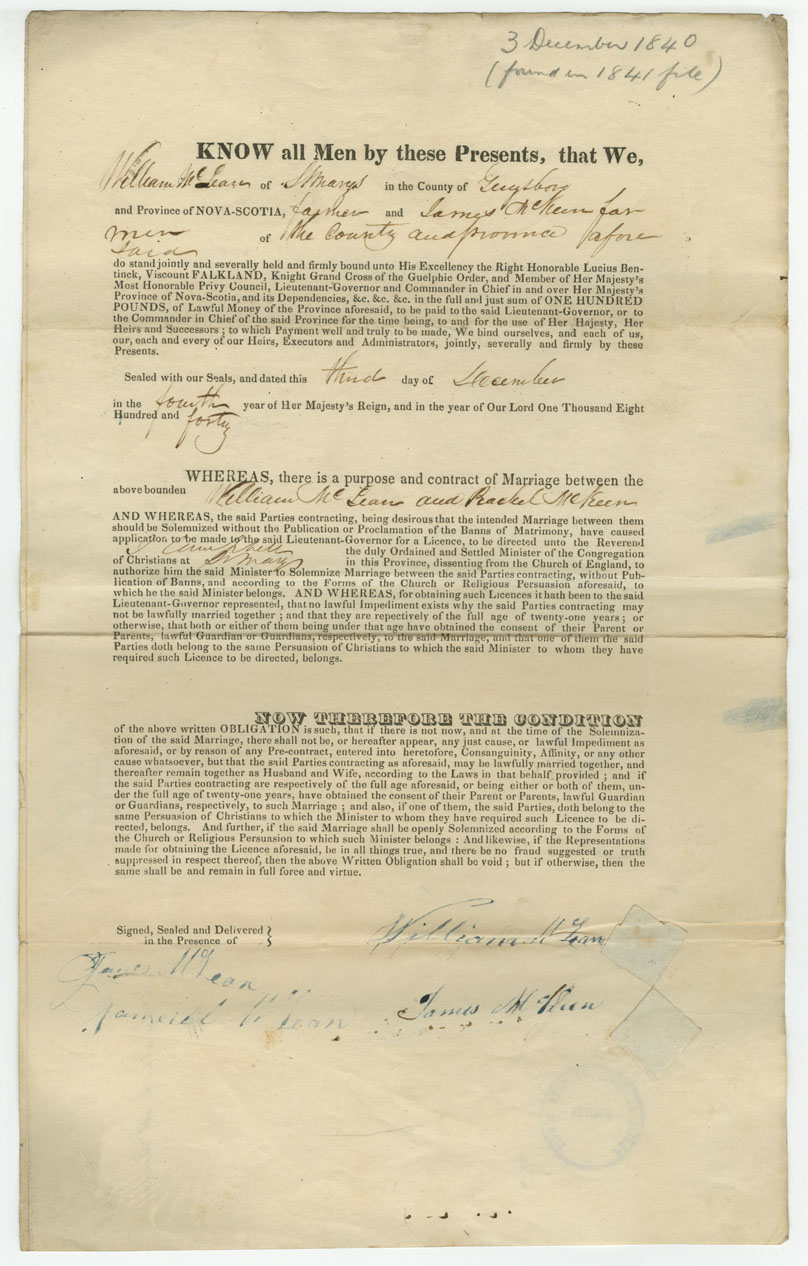 3 December 1840
(found in 1841 file)
KNOW all Men by these Presents, that We,
William McLean of St Marys in the County of Guysboro
and Province of NOVA-SCOTIA, farmer and James McKeen far
mer of the County and province afore
said
do stand jointly and severally held and firmly bound unto His Excellency the Right Honorable Lucius Ben-
tinck, Viscount FALKLAND, Knight Grand Cross of the Guelphic Order, and Member of Her Majesty's
Most Honorable Privy Council, Lieutenant-Governor and Commander in Chief in and over Her Majesty's
Province of Nova-Scotia, and its Dependencies, &c. &c. &c. in the full and just sum of ONE HUNDRED
POUNDS, of Lawful Money of the Province aforesaid, to be paid to the said Lieutenant-Governor, or to
the Commander in Chief of the said Province for the time being, to and for the use of Her Hajesty, Her
Heirs and Successors ; to which Payment well and truly to be made, We bind ourselves, and each of us,
our, each and every of our Heirs, Executors and Administrators, jointly, severally and firmly by these
Presents.
Sealed with our Seals, and dated this third day of December
in the fourth year of Her Majesty's Reign, and in the year of Our Lord One Thousand Eight
Hundred and forty
WHEREAS, there is a purpose and contract of Marriage between the
above bounden William McLean and Rachel McKeen
AND WHEREAS, the said Parties contracting, being desirous that the intended Marriage between them
should be Solemnized without the Publication or Proclamation of the Banns of Matrimony, have caused
application to be made to the said Lieutenant-Governor for a Licence, to be directed unto the Reverend
the duly Ordained and Settled Minister of the Congregation
of Christians at St Marys in this Province, dissenting from the Church of England, to
authorize him the said Minister to Solemnize Marriage between the said Parties contracting, without Pub-
lication of Banns, and according to the Forms of the Church or Religious Persuasion aforesaid, to
which he the said Minister belongs. AND WHEREAS, for obtaining such Licences it hath been to the said
Lieutenant-Governor represented, that no lawful Impediment exists why the said Parties contracting may
not be lawfully married together ; and that they are repectively of the full age of twenty-one years ; or
otherwise, that both or either of them being under that age have obtained the consent of their Parent or
Parents, lawful Guardian or Guardians, respectively, to the said Marriage, and that one of them the said
Parties doth belong to the same Persuasion of Christians to which the said Minister to whom they have
required such Licence to be directed, belongs.
NOW THEREFORE THE CONDITION
of the above written OBLIGATION is such, that if there is not now, and at the time of the Solemniza-
tion of the said Marriage, there shall not be, or hereafter appear, any just cause, or lawful Impediment as
aforesaid, or by reason of any Pre-contract, entered into heretofore, Consanguinity, Affinity, or any other
cause whatsoever, but that the said Parties contracting as aforesaid, may be lawfully married together, and
thereafter remain together as Husband and Wife, according to the Laws in that behalf provided ; and if
the said Parties contracting are respectively of the full age aforesaid, or being either or both of them, un-
der the full age of twenty-one years, have obtained the consent of their Parent or Parents, lawful Guardian
or Guardians, respectively, to such Marriage ; and also, if one of them, the said Parties, doth belong to the
same Persuasion of Christians to which the Minister to whom they have required such Licence to be di-
rected, belongs. And further, if the said Marriage shall be openly Solemnized according to the Forms of
the Church or Religious Persuasion to which such Minister belongs : And likewise, if the Representations
made for obtaining the Licence aforesaid, be in all things true, and there be no fraud suggested or truth
suppressed in respect thereof, then the above Written Obligation shall be void ; but if otherwise, then the
same shall be and remain in full force and virtue.
Signed, Sealed and Delivered }
in the Presence of }
William McLean
James McLean
McLean
James McKeen